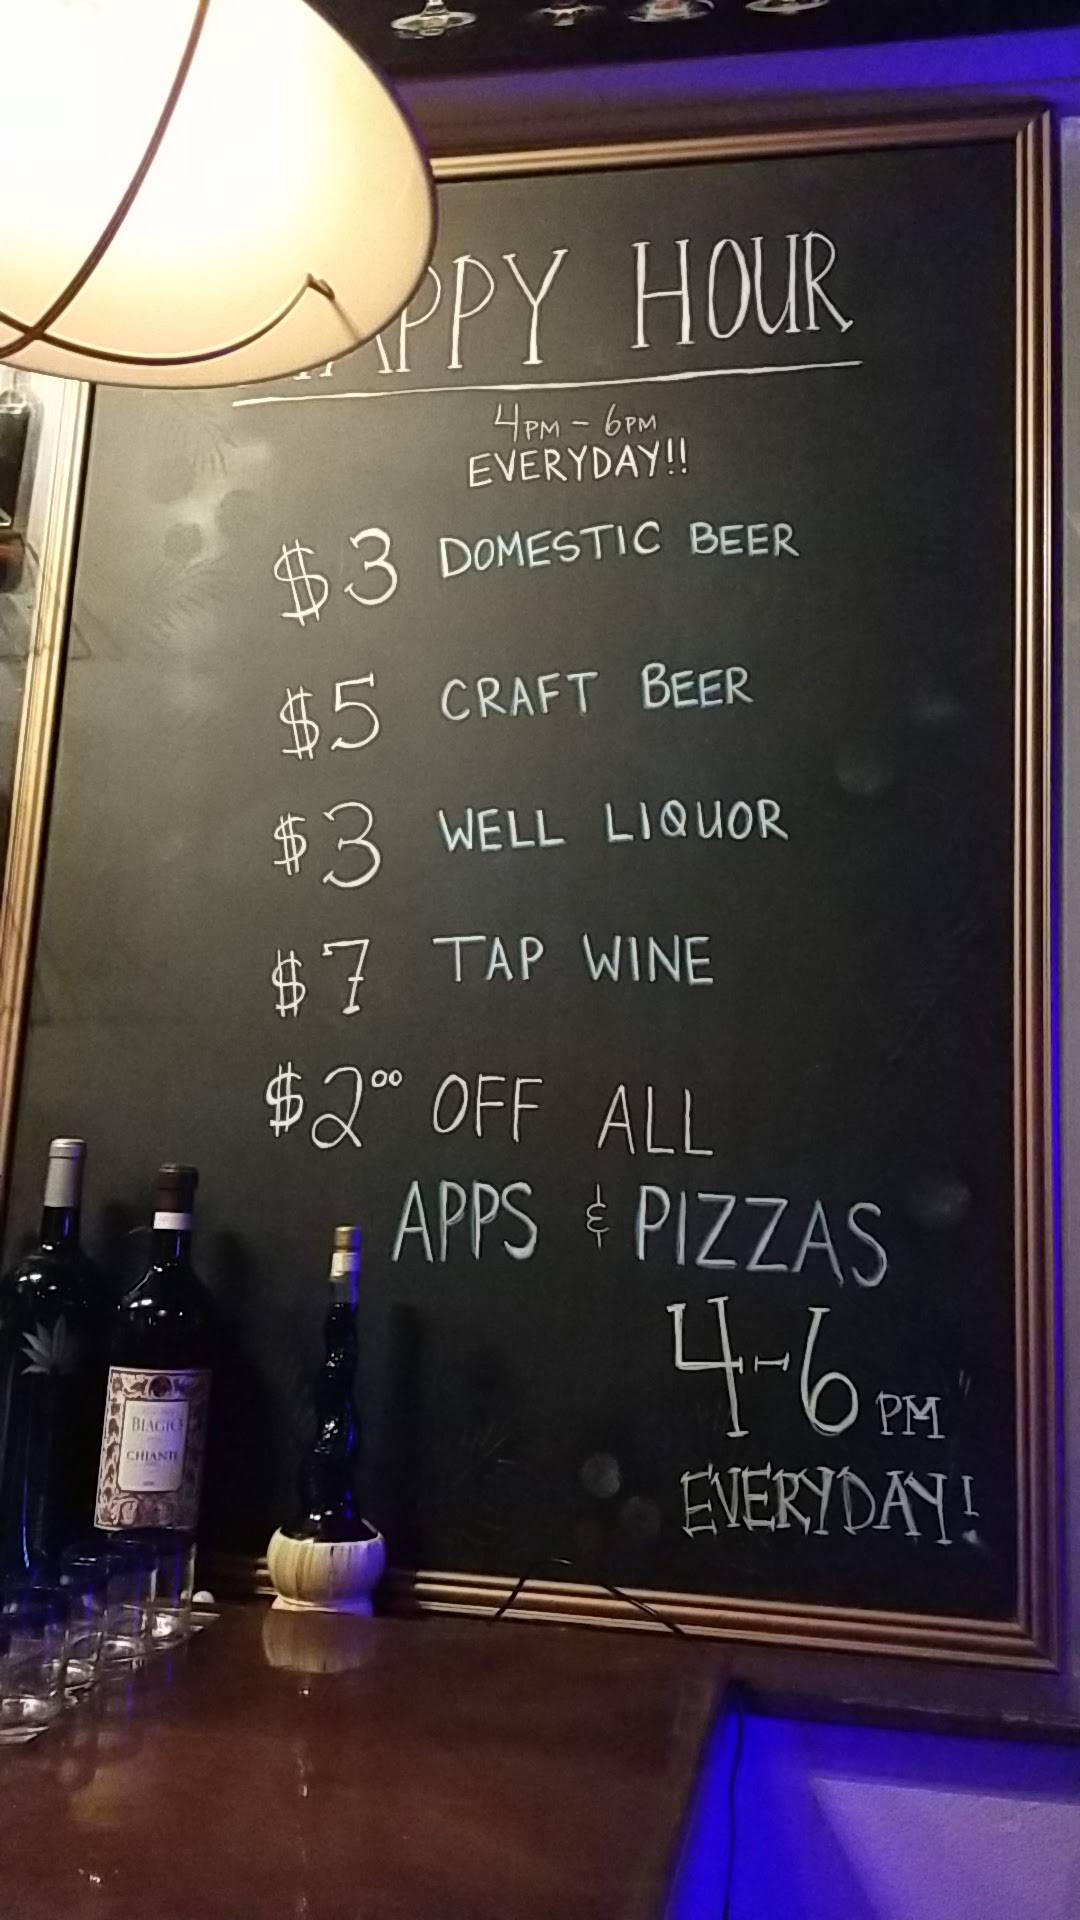 HAPPY HOUR
4PM - 6PM
EVERYDAY!!
$3 DOMESTIC BEER
$5 CRAFT BEER
$3 WELL LIQUOR
$7 TAP WINE
$2.00 OFF ALL
APPS & PIZZAS
4-6 PM
EVERYDAY!
BIAGIO
CHIANTI